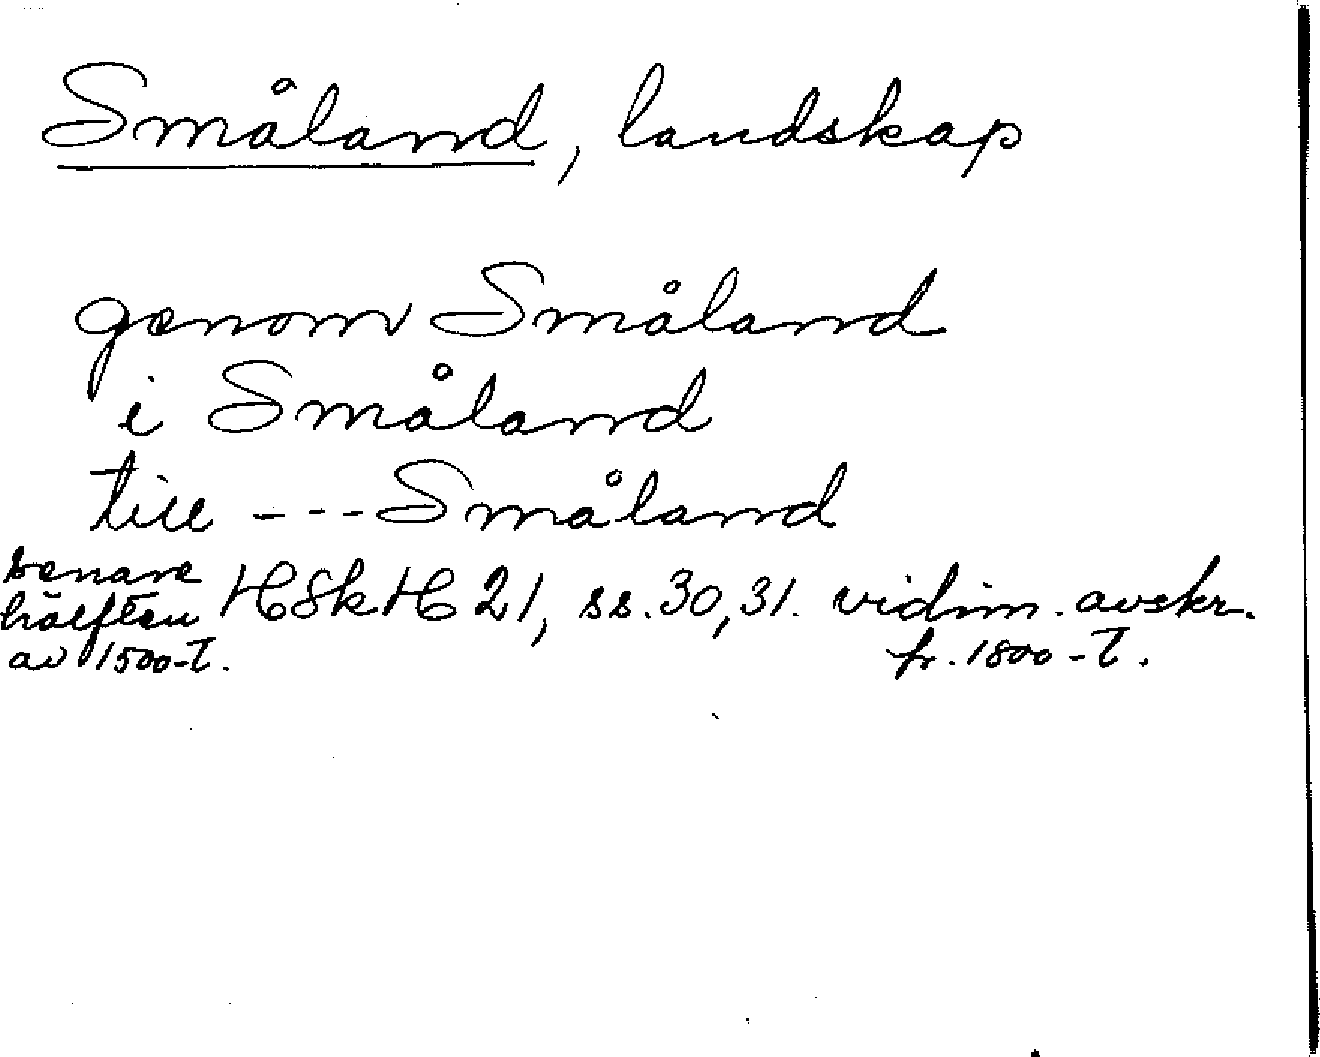 Småland, landskap
genom Småland
i Småland
till --- Småland
senare hälften av 1500-t. HSkH 21, ss. 30, 31. vidim. avskr. fr. 1800-t.